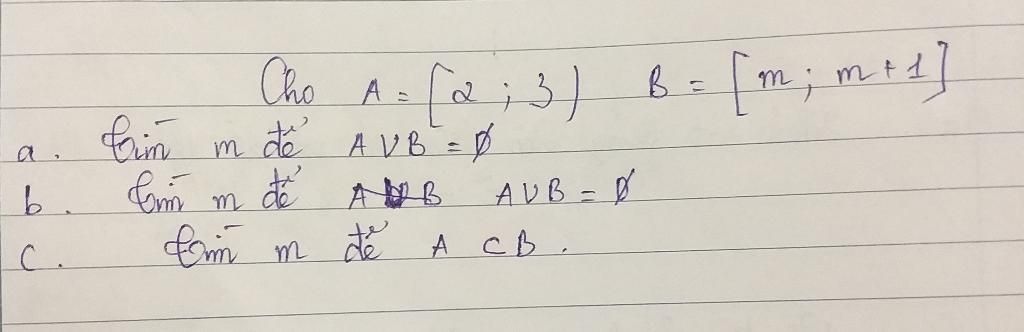 Cho A = [2 ; 3) B = [m ; m + 1]
a. Tìm m để A ∪ B = ∅
b. Tìm m để A ∪ B = ∅
c. Tìm m để A ⊂ B.